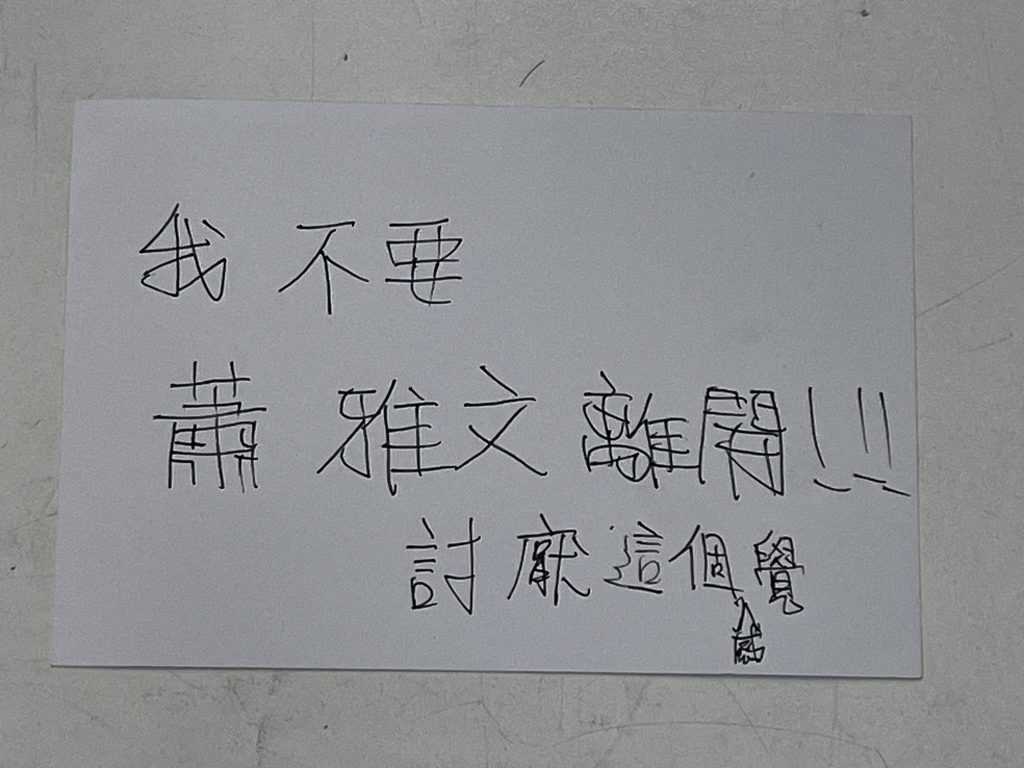 我不要
蕭雅文離開!!!
討厭這個感覺